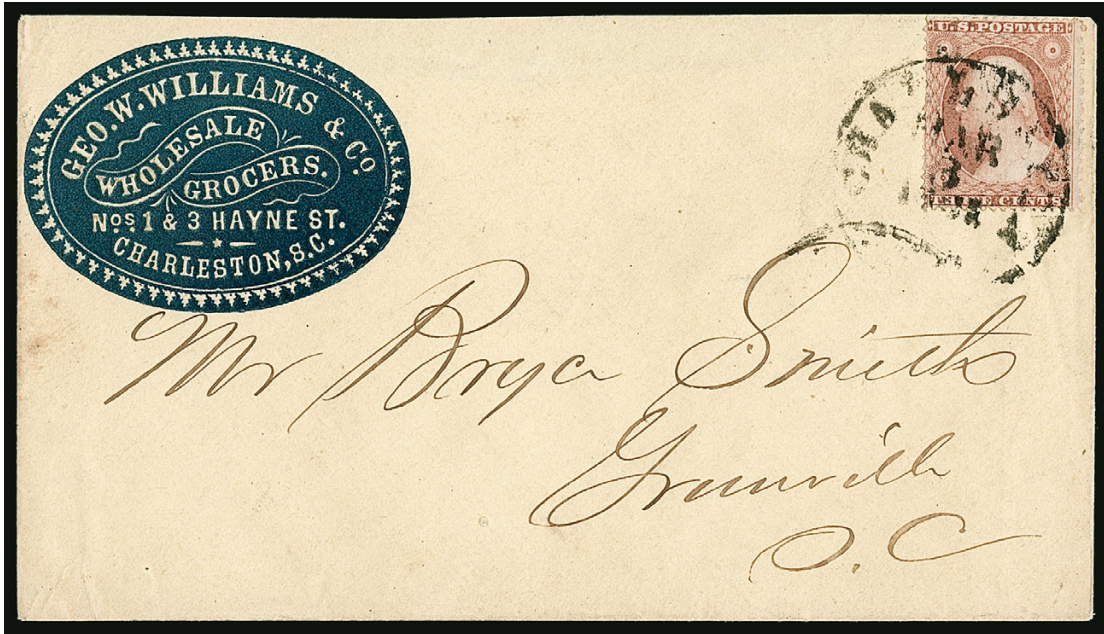 GEO. W. WILLIAMS & Co.
WHOLESALE
GROCERS.
Nos. 1 & 3 HAYNE ST.
CHARLESTON, S.C.
U.S. POSTAGE
THREE CENTS
MAR
Mr Bryce Smith
Greenville
S.C